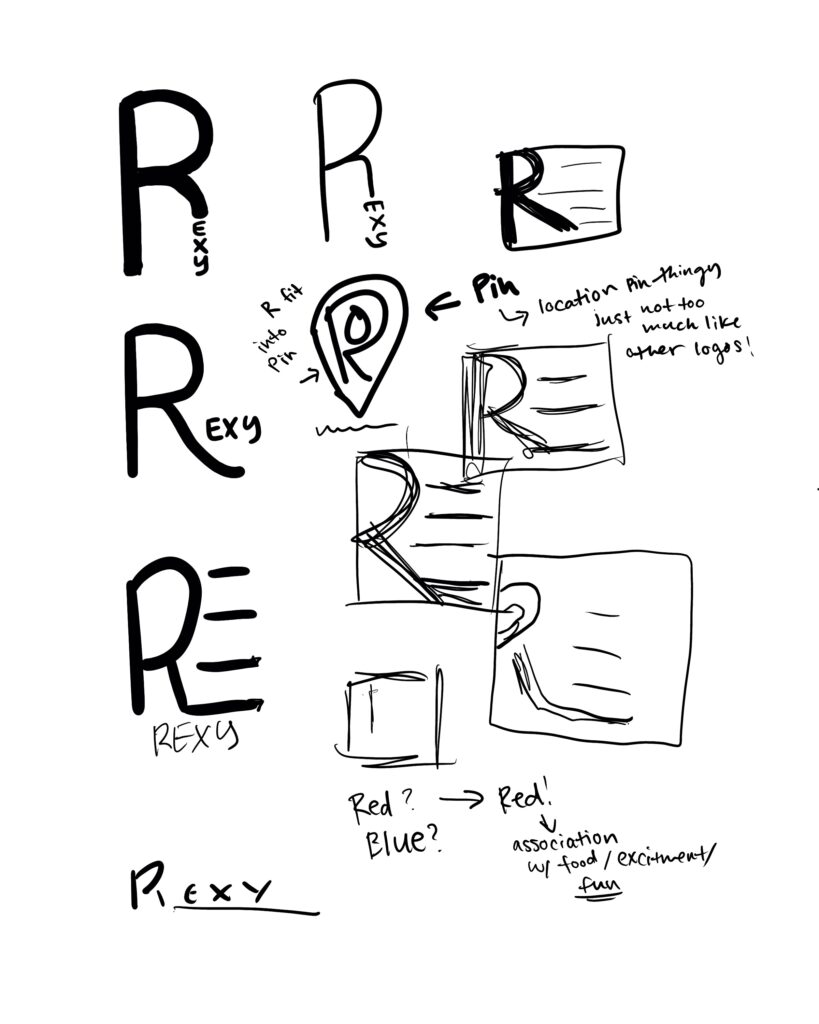 R
EXY
R
EXY
R
R fit
into
Pin
R
← Pin
↳ location pin thingy
just not too
much like
other logos!
R
EXY
R
R
RE
REXY
Red? → Red!
Blue?
↓
association
w/ food/excitment/
fun
REXY